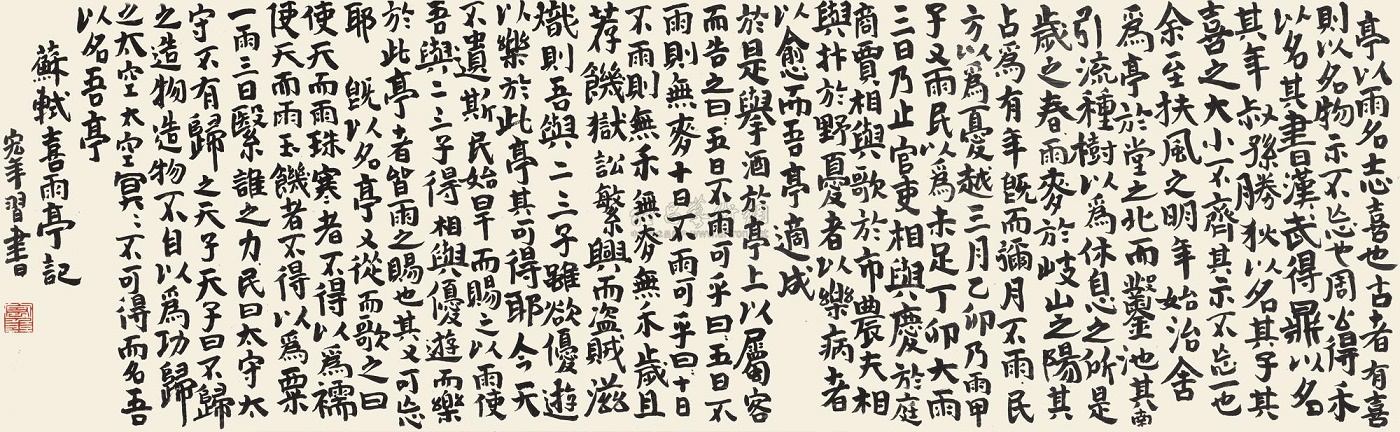 亭以雨名志喜也古者有喜
則以名物示不忘也周公得禾
以名其書曰漢武得鼎以名
其年叔孫勝狄以名其子其
喜之大小不齊其示不忘一也
余至扶風之明年始治舍
為亭於堂之北而鑿池其南
引流種樹以為休息之所是
歲之春雨麥於岐山之陽其
占為有年既而彌月不雨民
方以為憂越三月乙卯乃雨甲
子又雨民以為未足丁卯大雨
三日乃止官吏相與慶於庭
商賈相與歌於市農夫相
與抃於野憂者以樂病者
以愈而吾亭適成
於是舉酒於亭上以屬客
而告之曰五日不雨可乎曰五日不
雨則無麥十日不雨可乎曰十日
不雨則無禾無麥無禾歲且
荐饑獄訟繁興而盜賊滋
熾則吾與二三子雖欲優遊
以樂於此亭其可得耶今天
不遺斯民始旱而賜之以雨使
吾與二三子得相與優遊而樂
於此亭者皆雨之賜也其又可忘
耶 既以名亭又從而歌之曰
使天而雨珠寒者不得以為襦
使天而雨玉饑者不得以為粟
一雨三日繄誰之力民曰太守太
守不有歸之天子天子曰不歸
之造物造物不自以為功歸
之太空太空冥〻不可得而名吾
以名吾亭
蘇軾喜雨亭記
年習書